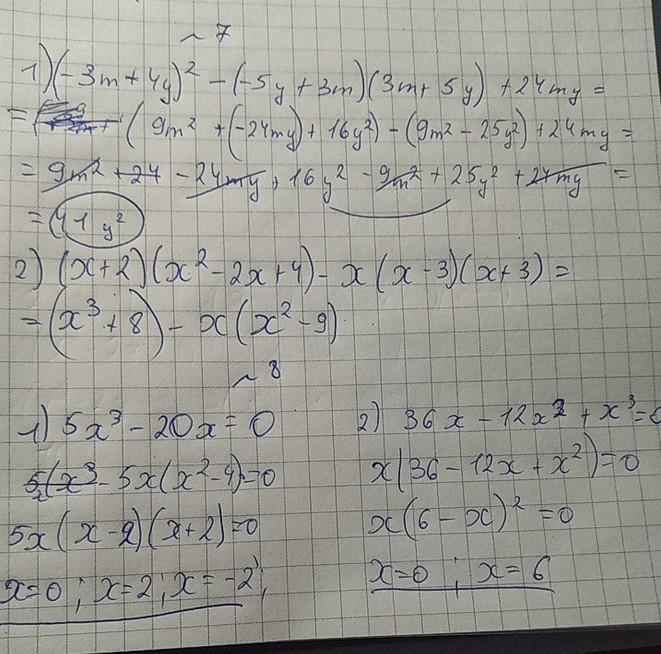 ~ 7
1) (-3m + 4y)² - (-5y + 3m)(3m + 5y) + 24my =
= (9m² + (-24my) + 16y²) - (9m² - 25y²) + 24my =
= 9m² + 24 - 24my + 16y² - 9m² + 25y² + 24my =
= 41y²
2) (x+2)(x² - 2x + 4) - x(x - 3)(x + 3) =
= (x³ + 8) - x(x² - 9)
~ 8
1) 5x³ - 20x = 0
5(x³ - 5x(x² - 4) = 0
5x(x - 2)(x + 2) = 0
x = 0 ; x = 2 ; x = -2 ;
2) 36x - 12x² + x³ = 0
x(36 - 12x + x²) = 0
x(6 - x)² = 0
x = 0 ; x = 6